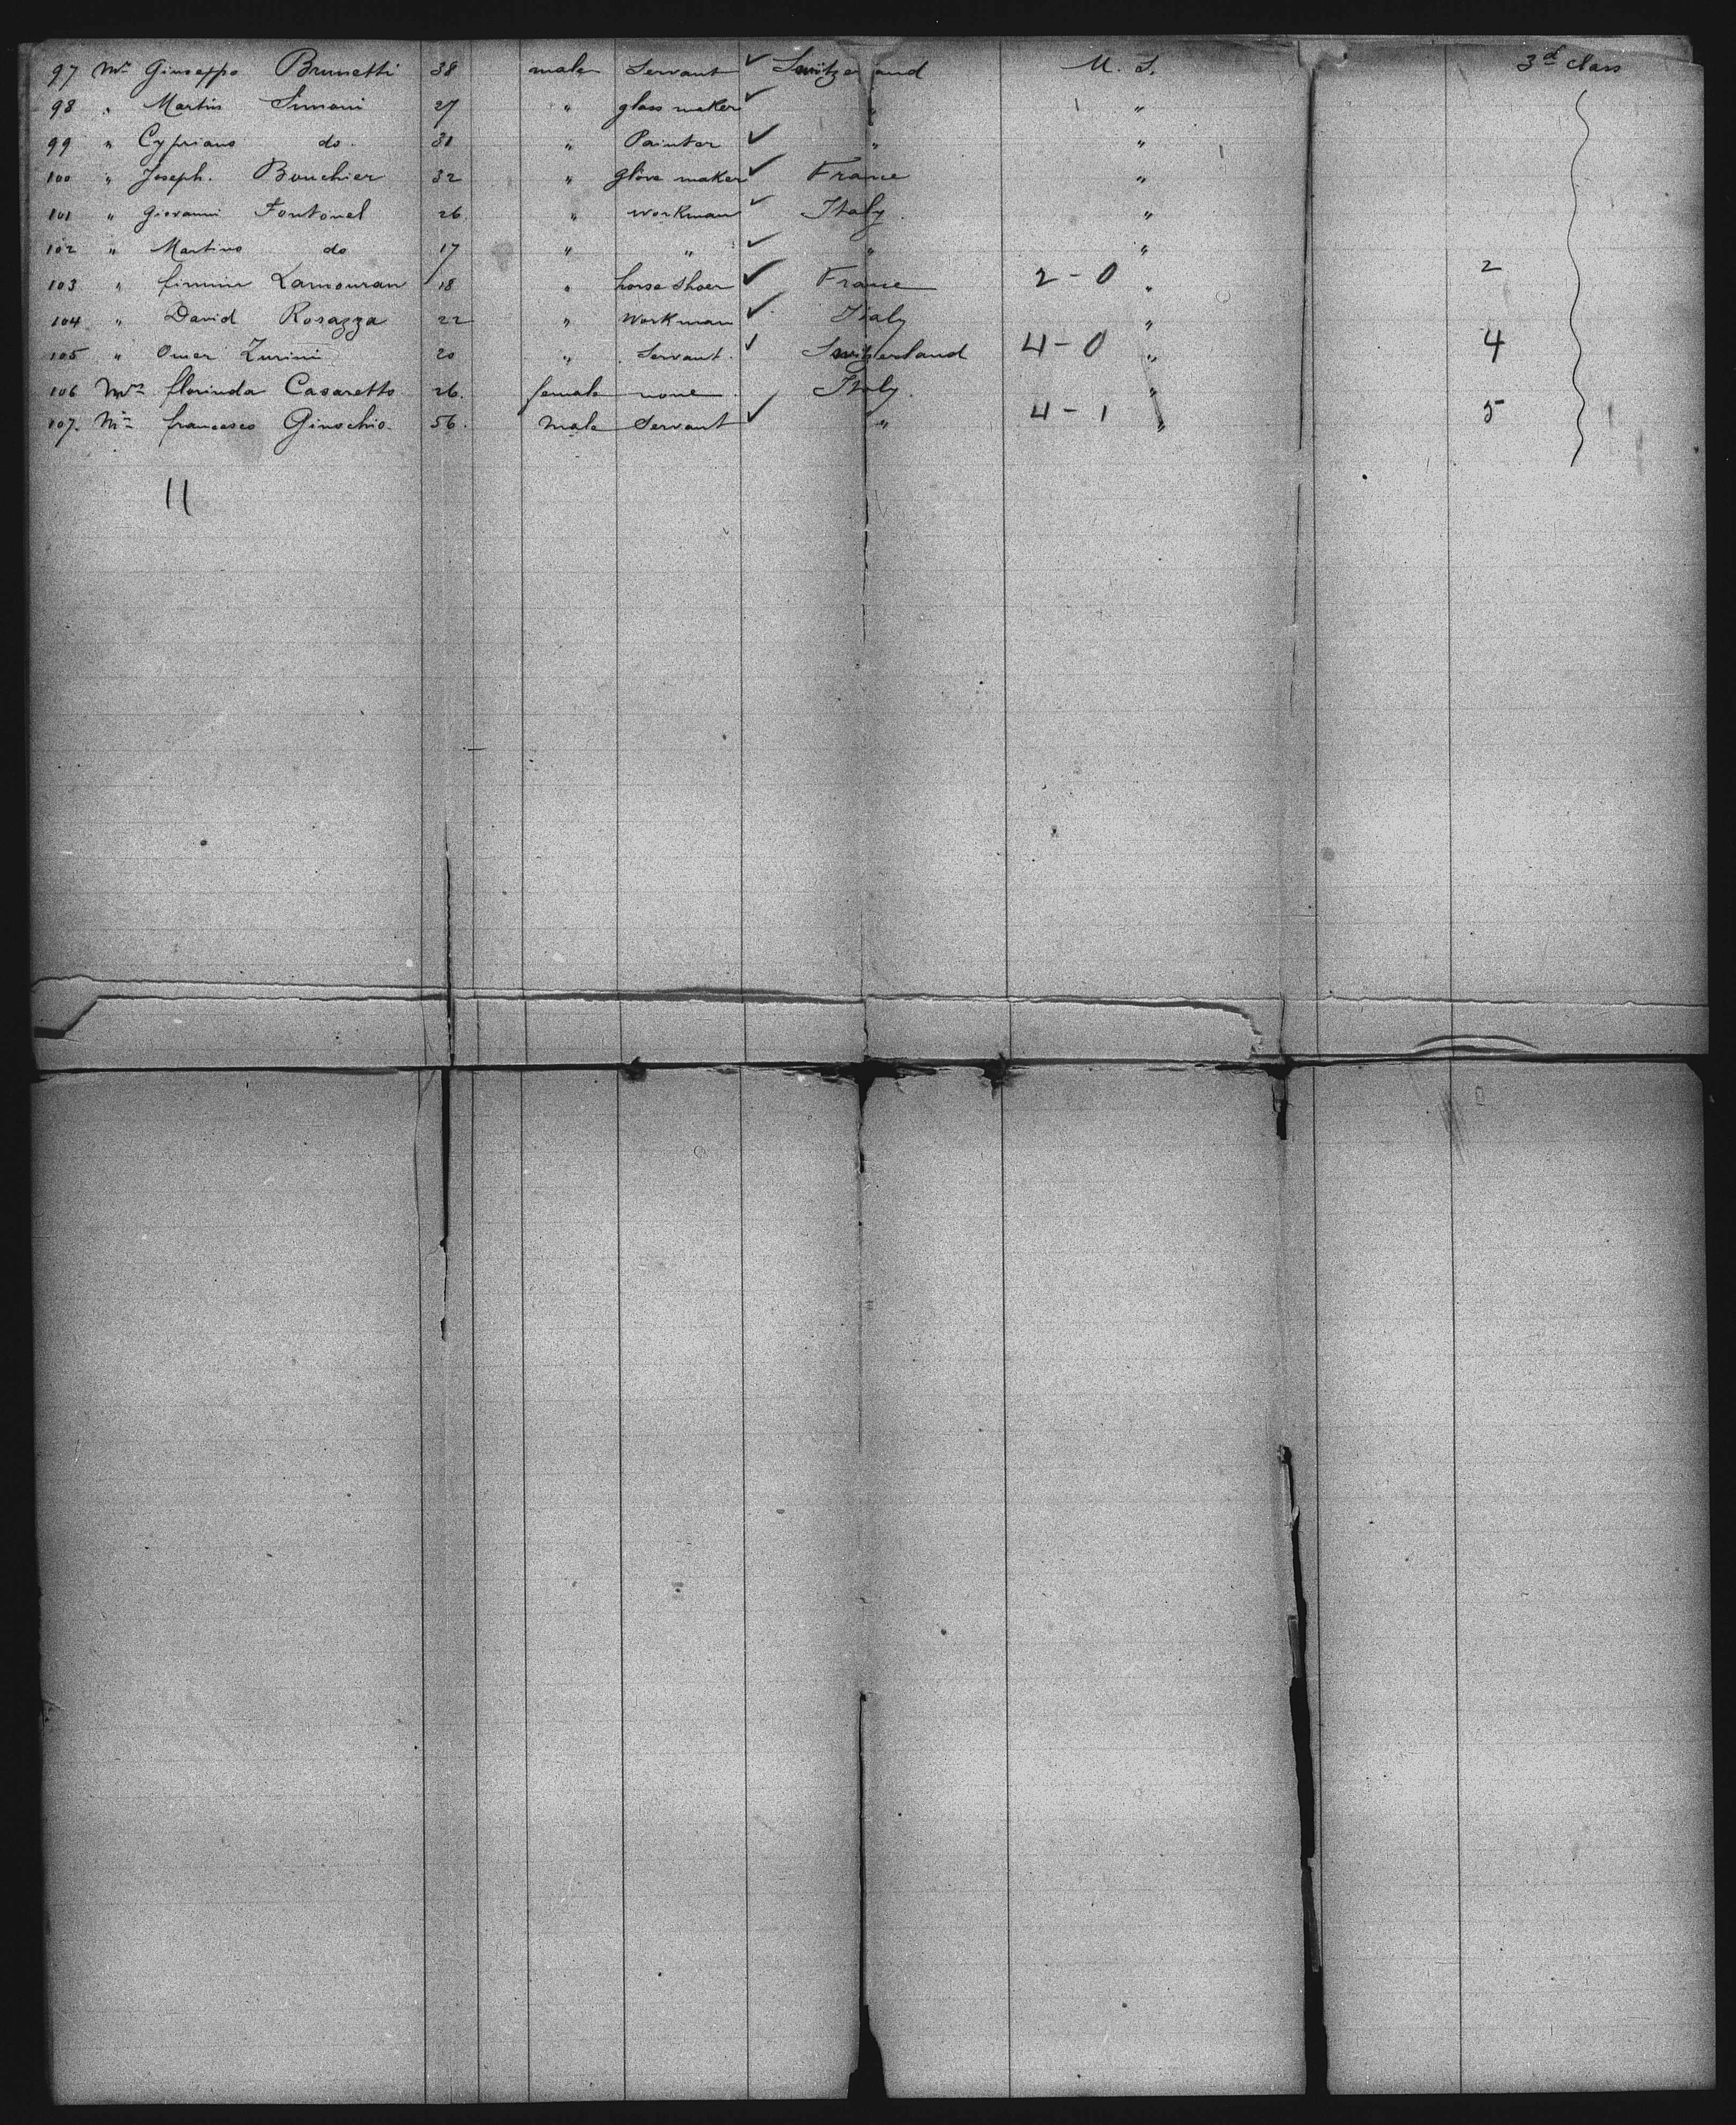 97 Mr Giuseppe Brunetti 38 male Servant ✓ Switzerland U. S. 3d class
98 " Martin Simoni 27 " glass maker ✓ " "
99 " Cypriano do. 31 " Painter ✓ " "
100 " Joseph. Bouchier 32 " glove maker ✓ France "
101 " Giovanni Fontonel 26. " workman ✓ Italy. "
102 " Martino do 17 " " ✓ " "
103 " firmin Lamouran 18 " horse Shoer ✓ France 2 - 0 " 2
104 " David Rosazza 22 " Workman ✓ Italy "
105 " Omer Zurini 20 " Servant. ✓ Switzerland 4 - 0 " 4
106 Mrs florinda Casaretto 26. female none. Italy. "
107. Mr francesco Ginochio. 56. Male Servant ✓ " 4 - 1 " 5
11